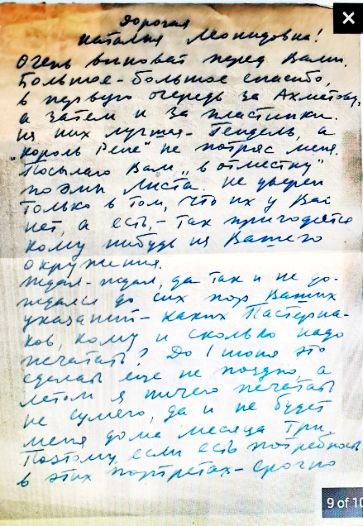 Дорогая
Наталья Леонидовна!
Очень виноват перед Вами.
Большое-большое спасибо,
в первую очередь за Ахматову,
а затем и за пластинки.
Из них лучшая - Гендель, а
"Король Рене" не потряс меня.
Посылаю Вам "в отместку"
поэмы Листа. Не уверен
только в том, что их у Вас
нет, а есть, - так пригодятся
кому нибудь из Вашего
окружения.
Ждал-ждал, да так и не до-
ждался до сих пор Ваших
указаний - каких Пастерна-
ков, кому и сколько надо
печатать? До 1 июня это
сделать еще не поздно, а
летом я ничего печатать
не сумею, да и не будет
меня дома месяца три.
Поэтому, если есть потребность
в этих портретах - срочно
9 of 10